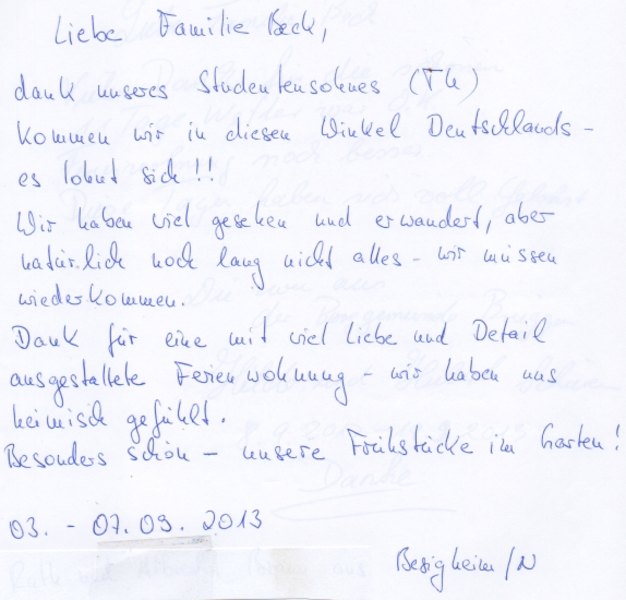 Liebe Familie Beck,
dank unseres Studentensohnes (TU)
kommen wir in diesen Winkel Deutschlands -
es lohnt sich!!
Wir haben viel gesehen und erwandert, aber
natürlich noch lang nicht alles - wir müssen
wiederkommen.
Dank für eine mit viel Liebe und Detail
ausgestaltete Ferienwohnung - wir haben uns
heimisch gefühlt.
Besonders schön - unsere Frühstücke im Garten!
03. - 07.09. 2013
Besigheim/N
Danke